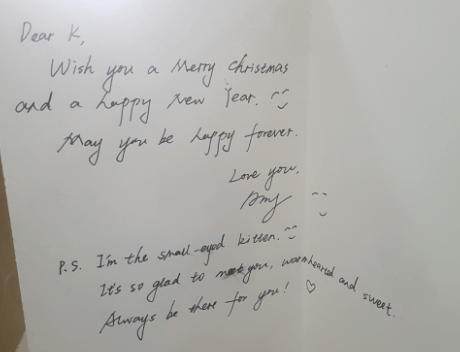 Dear K,
Wish you a Merry Christmas
and a happy New Year. ^^
May you be happy forever.
Love you,
Amy ^^
P.S. I'm the small-eyed kitten. ^^
It's so glad to meet you, warmhearted and sweet.
Always be there for you! ♡